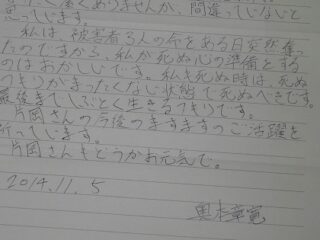 たく深くありませんが、間違っじないと
思っじします。
私は、被害者3人の命をある日突然奪っ
たのですから、私が死ぬ心の準備をする
のはおかしいです。私も死ぬ時は、死ぬ
つもりがまったくない状態で死ぬべきです。
最後まてしぶとく生きるつもりです。
片岡さんの今後のますますのご活躍を
祈っています。
片岡さんもどうかお元気で。
2014.11.5
奥本章寛